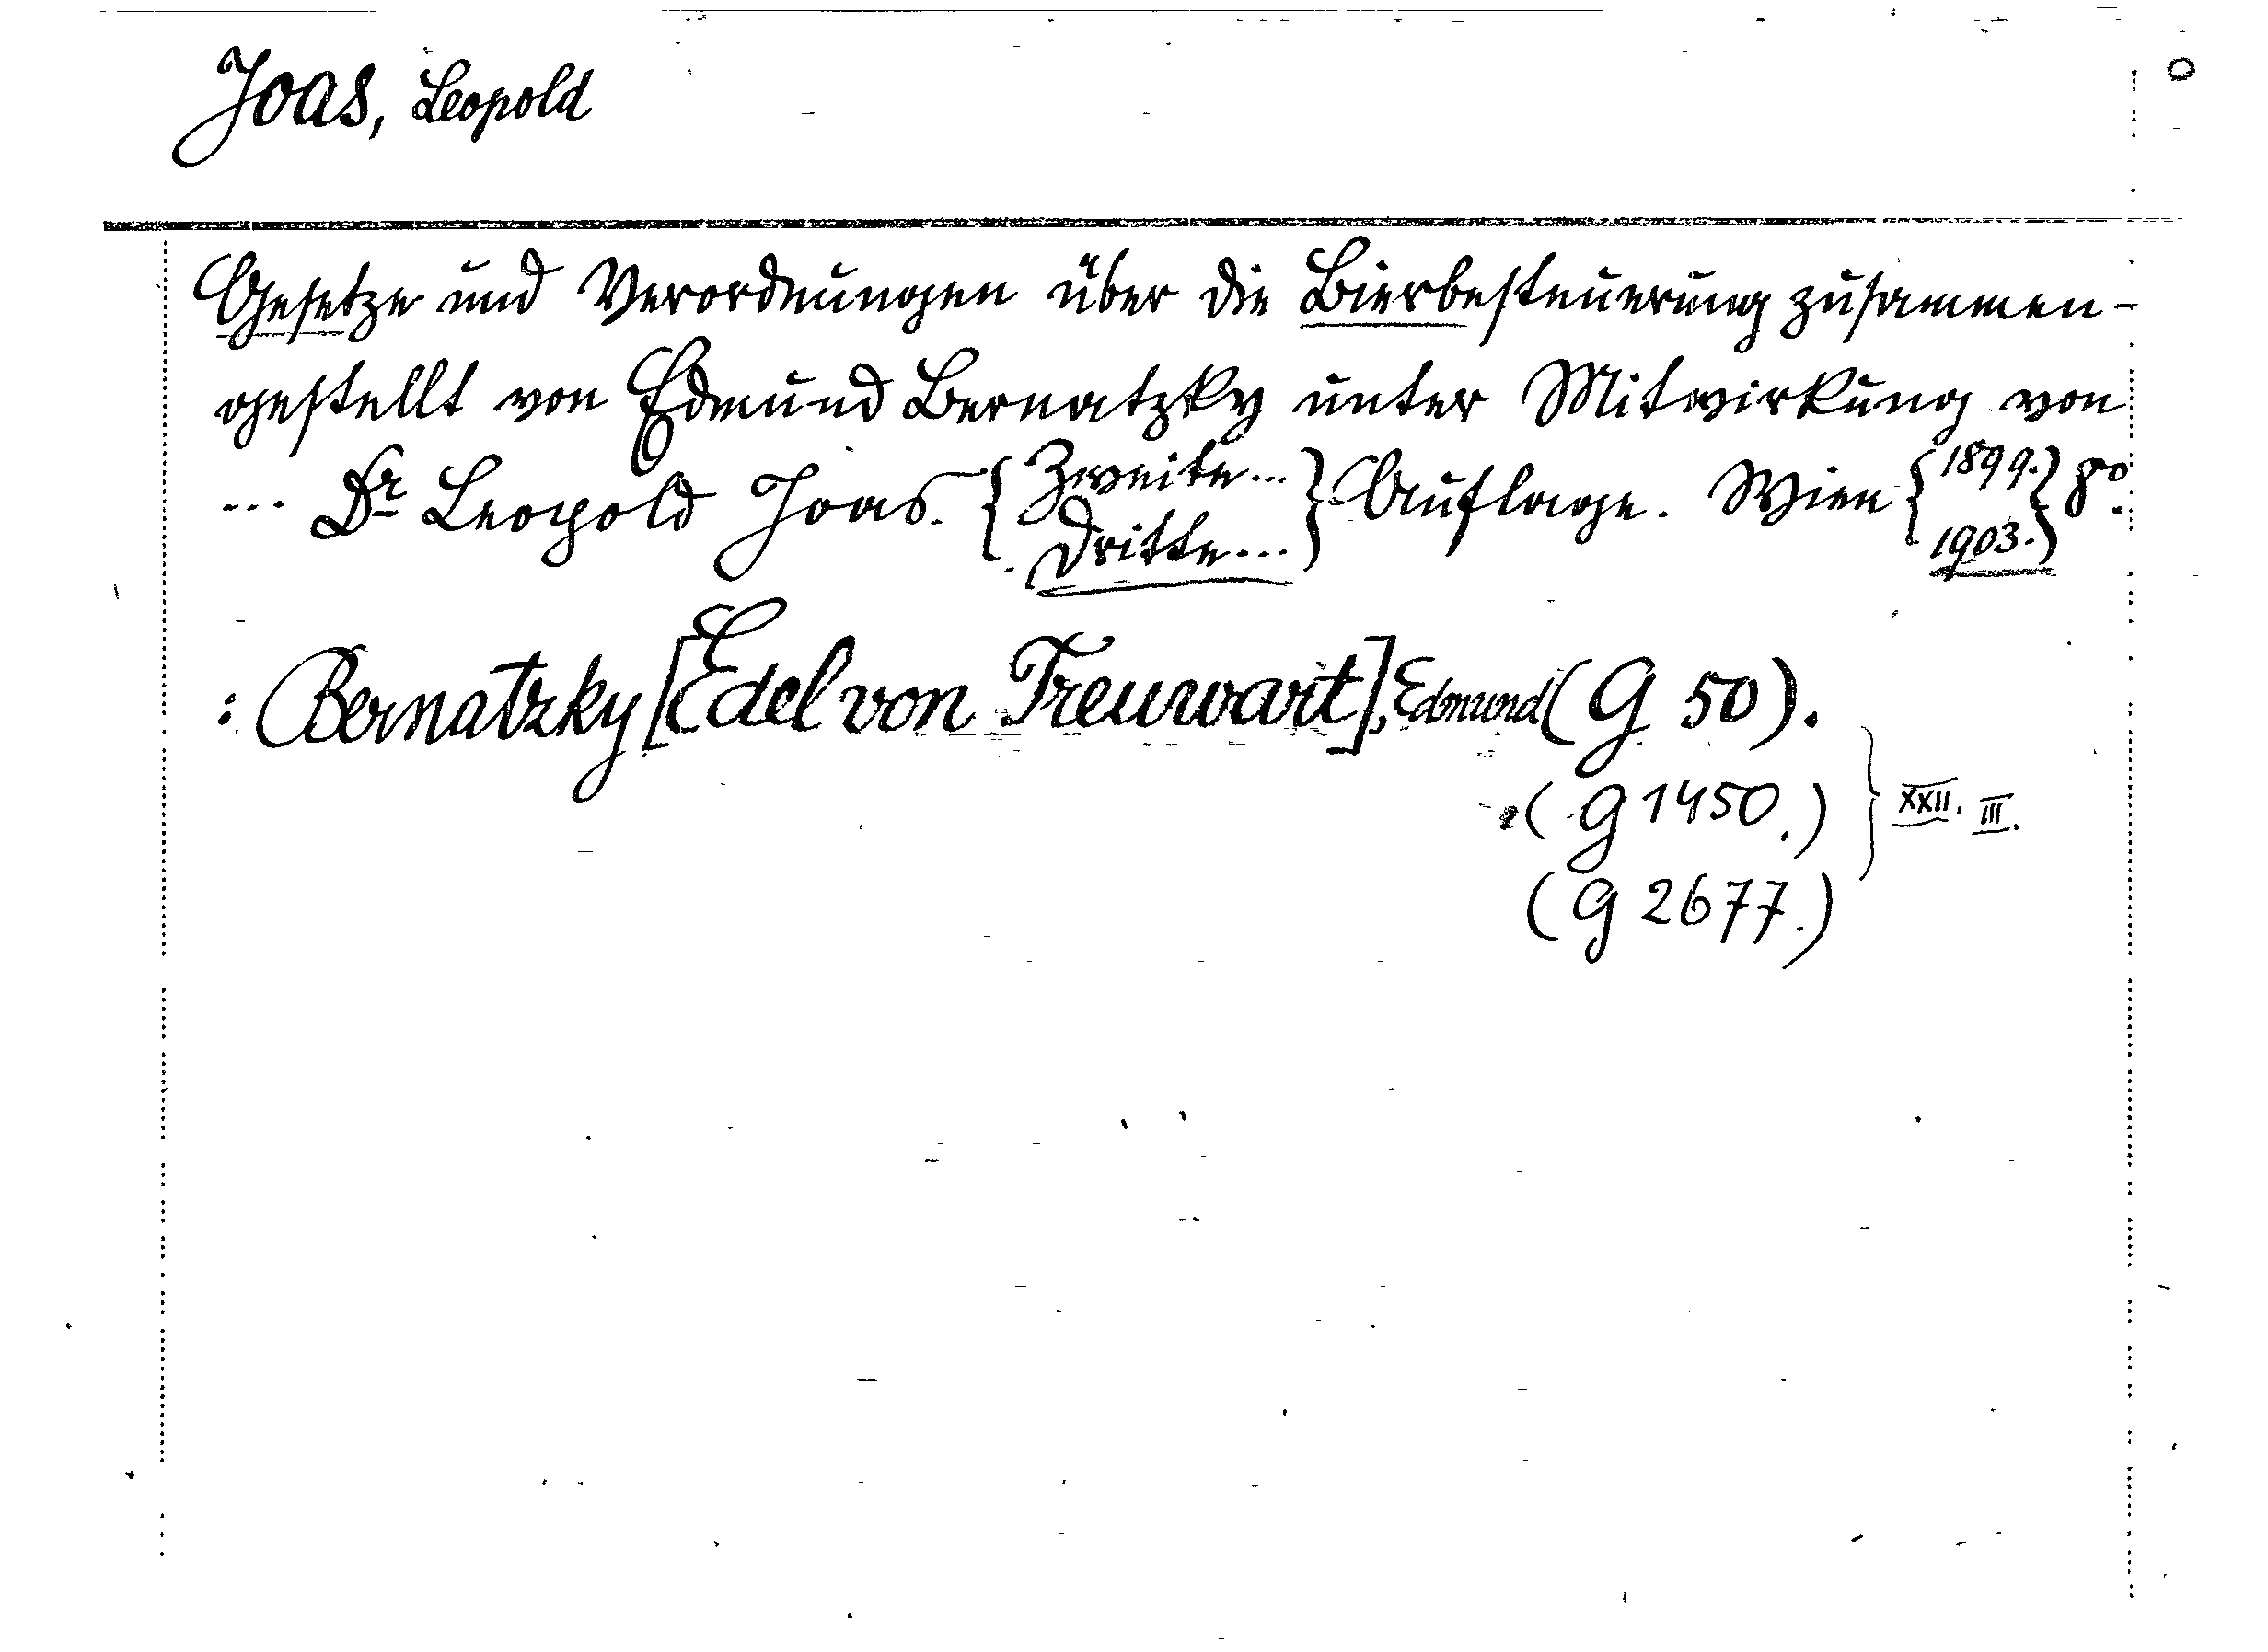 Joas, Leopold
Gesetze und Verordnungen über die Bierbesteuerung zusammen-
gestellt von Edmund Bernatzky unter Mitwirkung von
... Dr Leopold Joas. { Zweite... } Auflage. Wien { 1899. } 8º.
Dritte... 1903.
: Bernatzky [Edel von Treuwart], Edmund (G 50).
(G 1450.) } XXII. III.
(G 2677.)